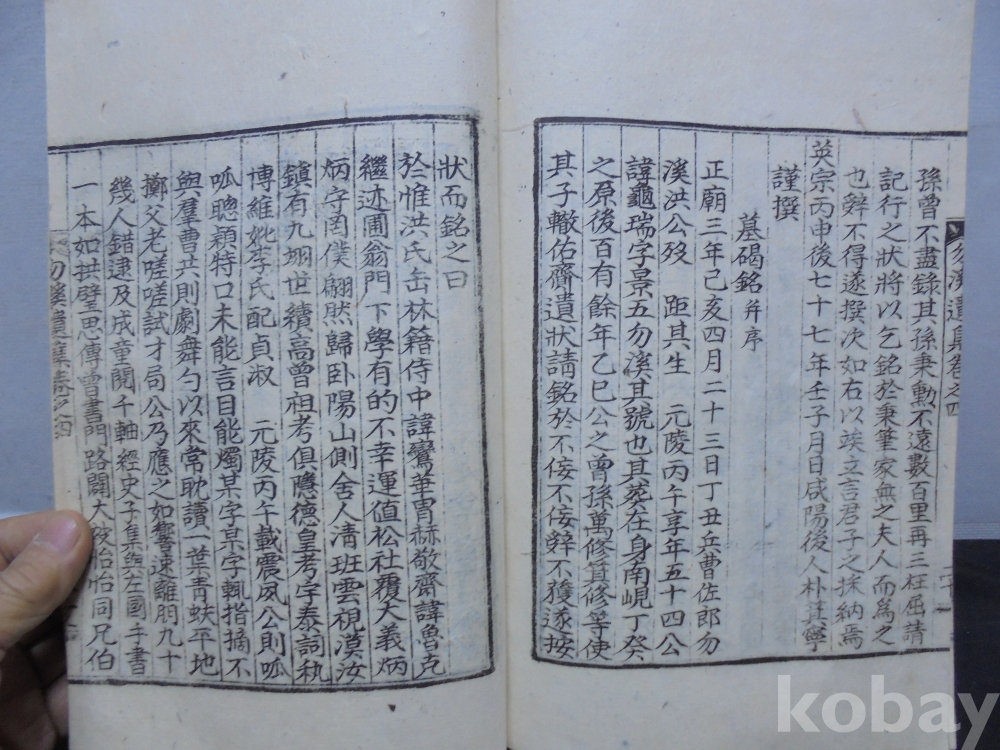 孫曾不盡錄其孫秉勳不遠數百里再三枉屈請
記行之狀將以乞銘於秉筆家無之夫人而為之
也辤不得遂撰次如右以竢立言君子之採納焉
英宗丙申後七十七年壬子月日咸陽後人朴淇寧
謹撰
墓碣銘 幷序
正廟三年己亥四月二十三日丁丑兵曹佐郎勿
溪洪公歿 距其生 元陵丙午享年五十四公
諱龜瑞字景五勿溪其號也其葬在身南峴丁癸
之原後百有餘年乙巳公之曾孫萬修箕修等使
其子轍佑齎遺狀請銘於不佞不佞辤不獲遂按
勿溪遺集卷之四
狀而銘之曰
於惟洪氏缶林籍侍中諱鸞華冑赫敬齋諱魯克
繼述圃翁門下學有的不幸運值松社覆大義炳
炳字罔僕翩然歸卧陽山側舍人淸班雲視漠汝
鎮有九翊世績高曾祖考俱應德皇考字泰詞執
博維妣李氏配貞淑 元陵丙午載震夙公則呱
呱聰穎特口未能言目能燭某字某字輒指摘不
與羣曹共則劇舞勺以來常耽讀一葉靑蚨平地
擲父老嗟嗟試才局公乃應之如響速離朋九十
幾人錯逮及成童閱千軸經史子集與左國手書
一本如拱璧思傳曾書門路闢大被怡怡同兄伯
勿溪遺集卷之四
kobay